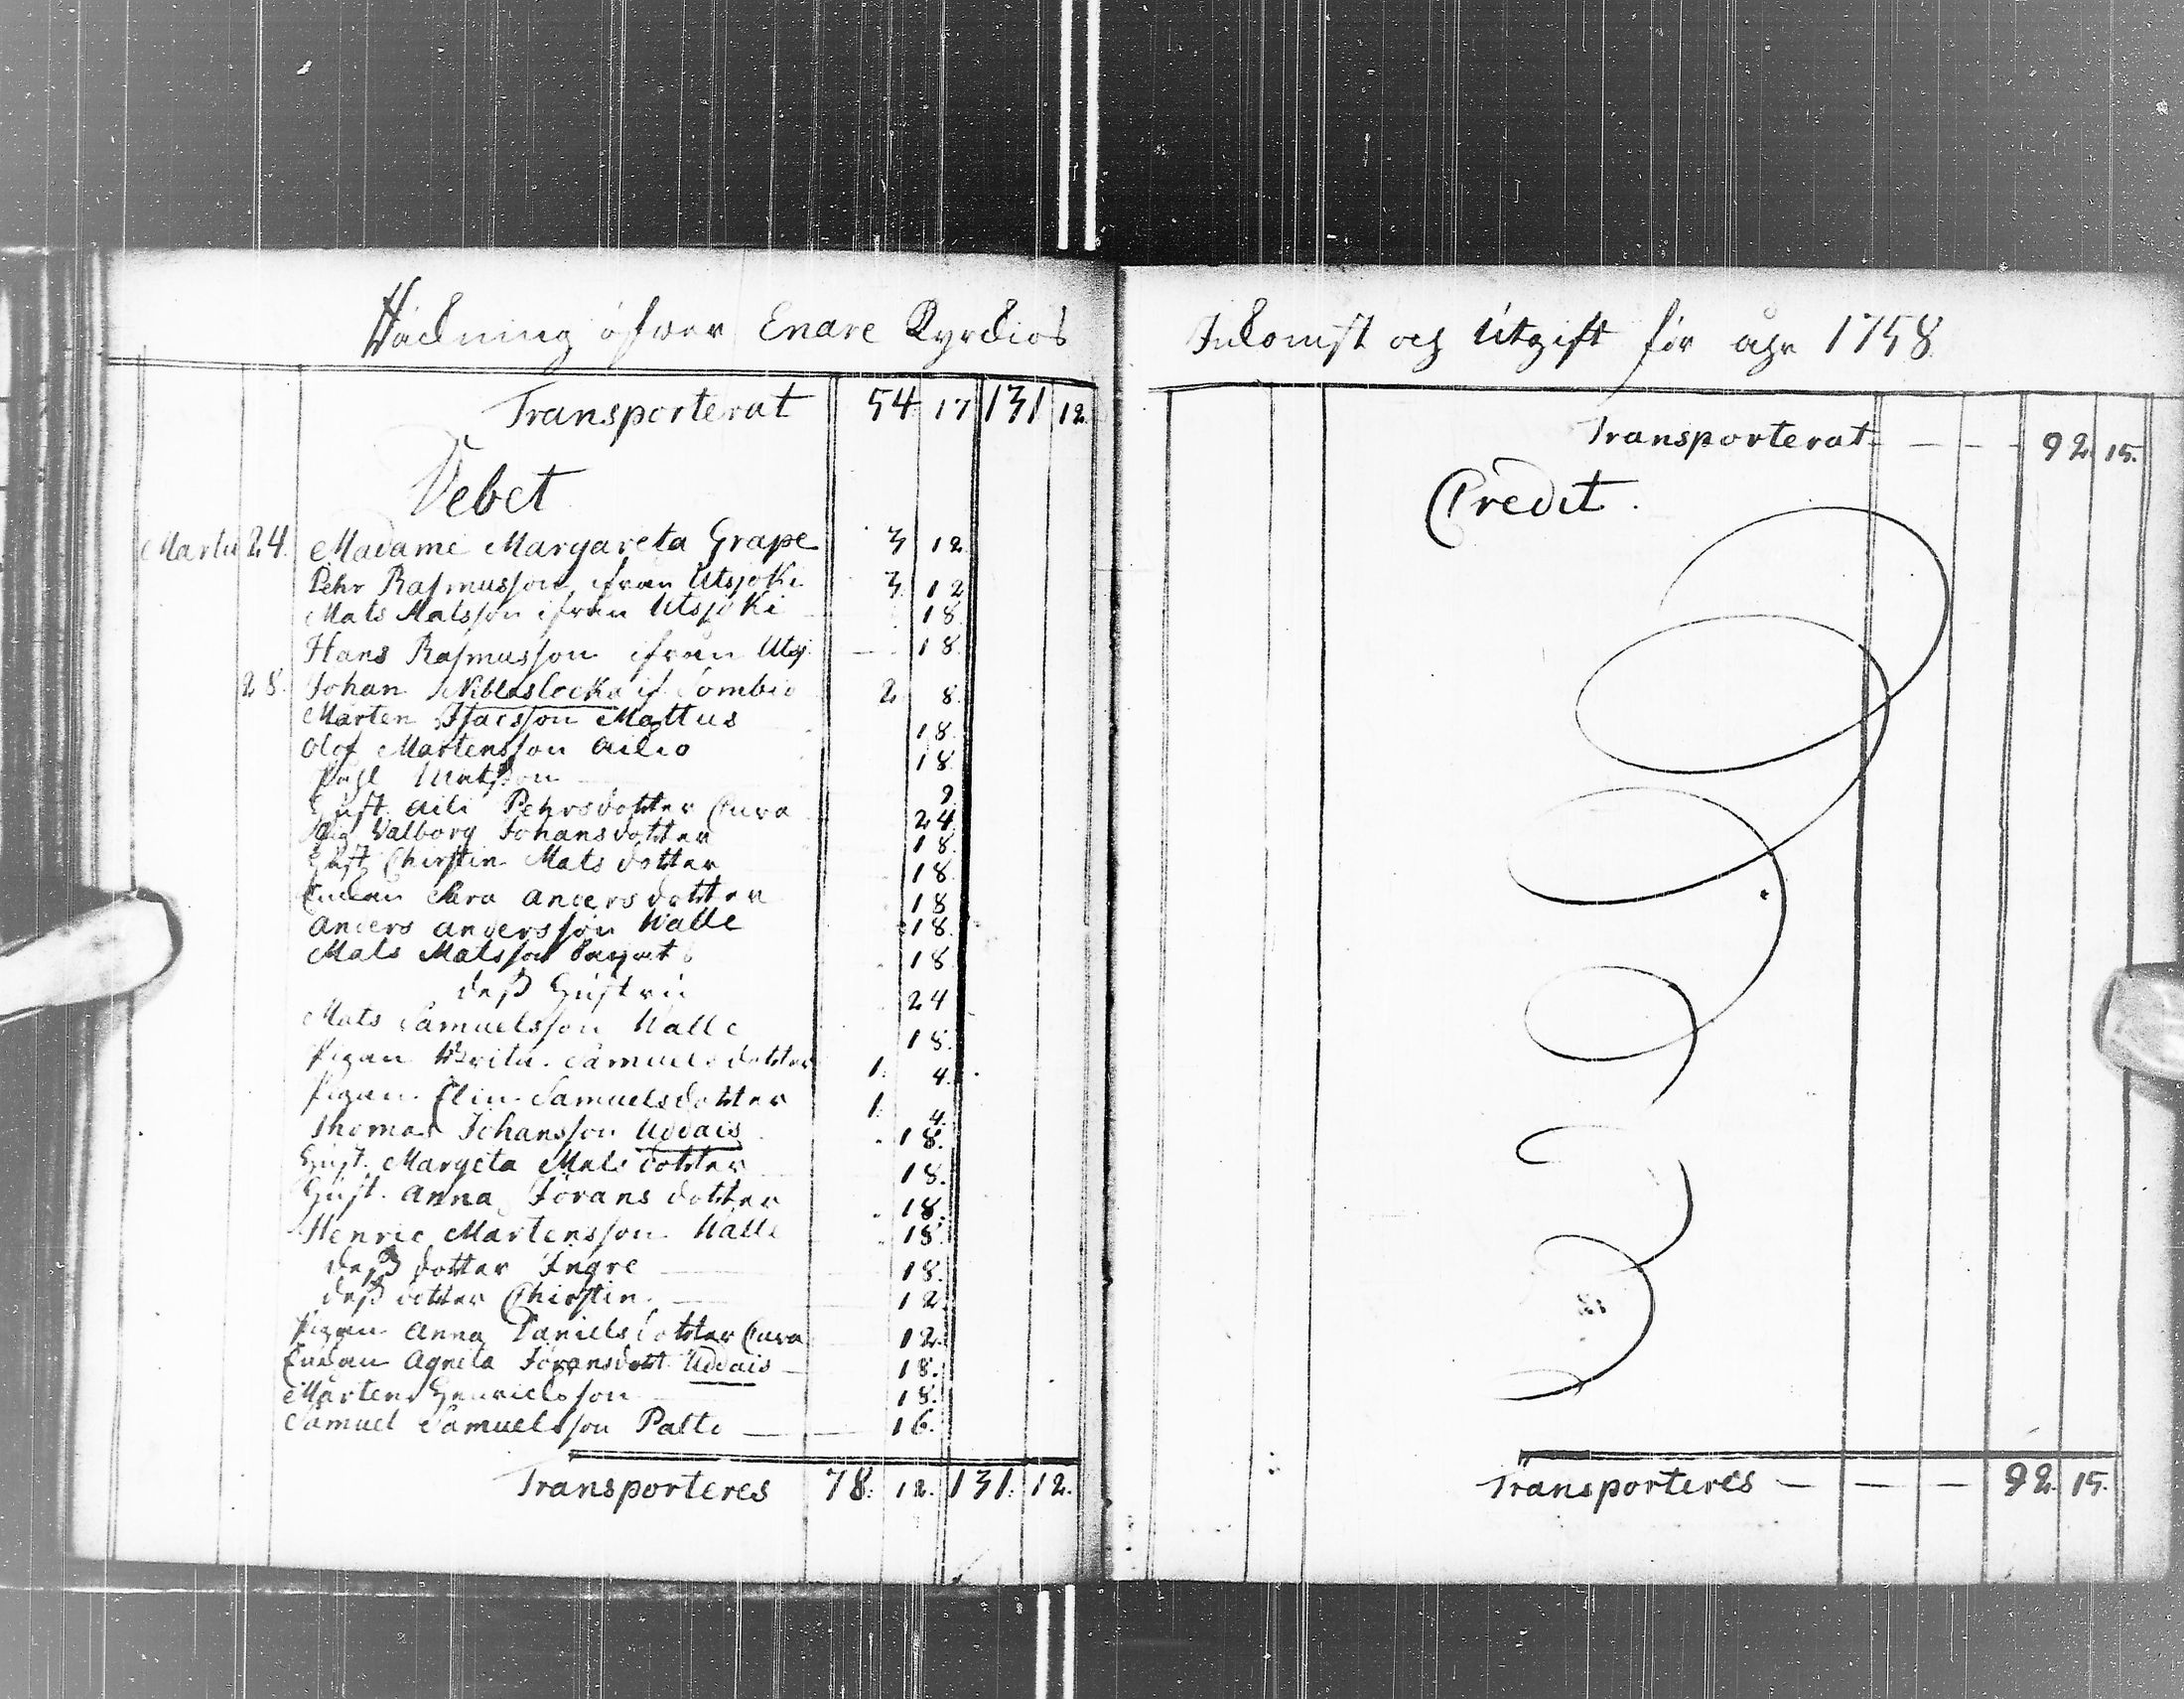 Räckning öfwer Enare Kyrckios
Transporterat 54. 17 131 12.
Debet
Martii 24. Madame Margareta Grape 3 12
Pehr Rasmusson ifrån Utsjoki 3. 12
Mats Matsson ifrån Utsjoki 18.
Hans Rasmusson ifrån Utsj. — 18.
28. Johan if. Sombio 2 8.
Mårten Isacsson Mattus 18.
Olof Mårtensson Ailio 18.
Påhl Matsson 9.
Hust. Aili Pehrsdotter Cura 24.
Pig. Walborg Johansdotter 18.
Hust. Chirstin Mats dotter 18.
Enckan Sara Andersdotter 18
Anders Andersson Walle 18.
Mats Matsson 18
dess Hustru 24
Mats Samuelsson Walle 18.
Pigan Brita Samuelsdotter 1. 4.
Pigan Elin Samuelsdotter 1. 4.
Thomas Johansson Uddais 18.
Hust. Margeta Matsdotter 18.
Hust. Anna Jörans dotter 18.
Henric Mårtensson Walle 18.
dess dotter Ingre — 18.
dess dotter Chirstin. — 12
Pigan Anna Danielsdotter Cura 12.
Enckan Agneta Joransdott Uddais — 18.
Mårten Henricksson 18.
Samuel Samuelsson Palto — — 16.
Transporteres 78. 12. 131. 12.
Inkomst och Utgift för åhr 1758
Transporterat — — — 92. 15.
Credit.
Transporteres — — — 92. 15.